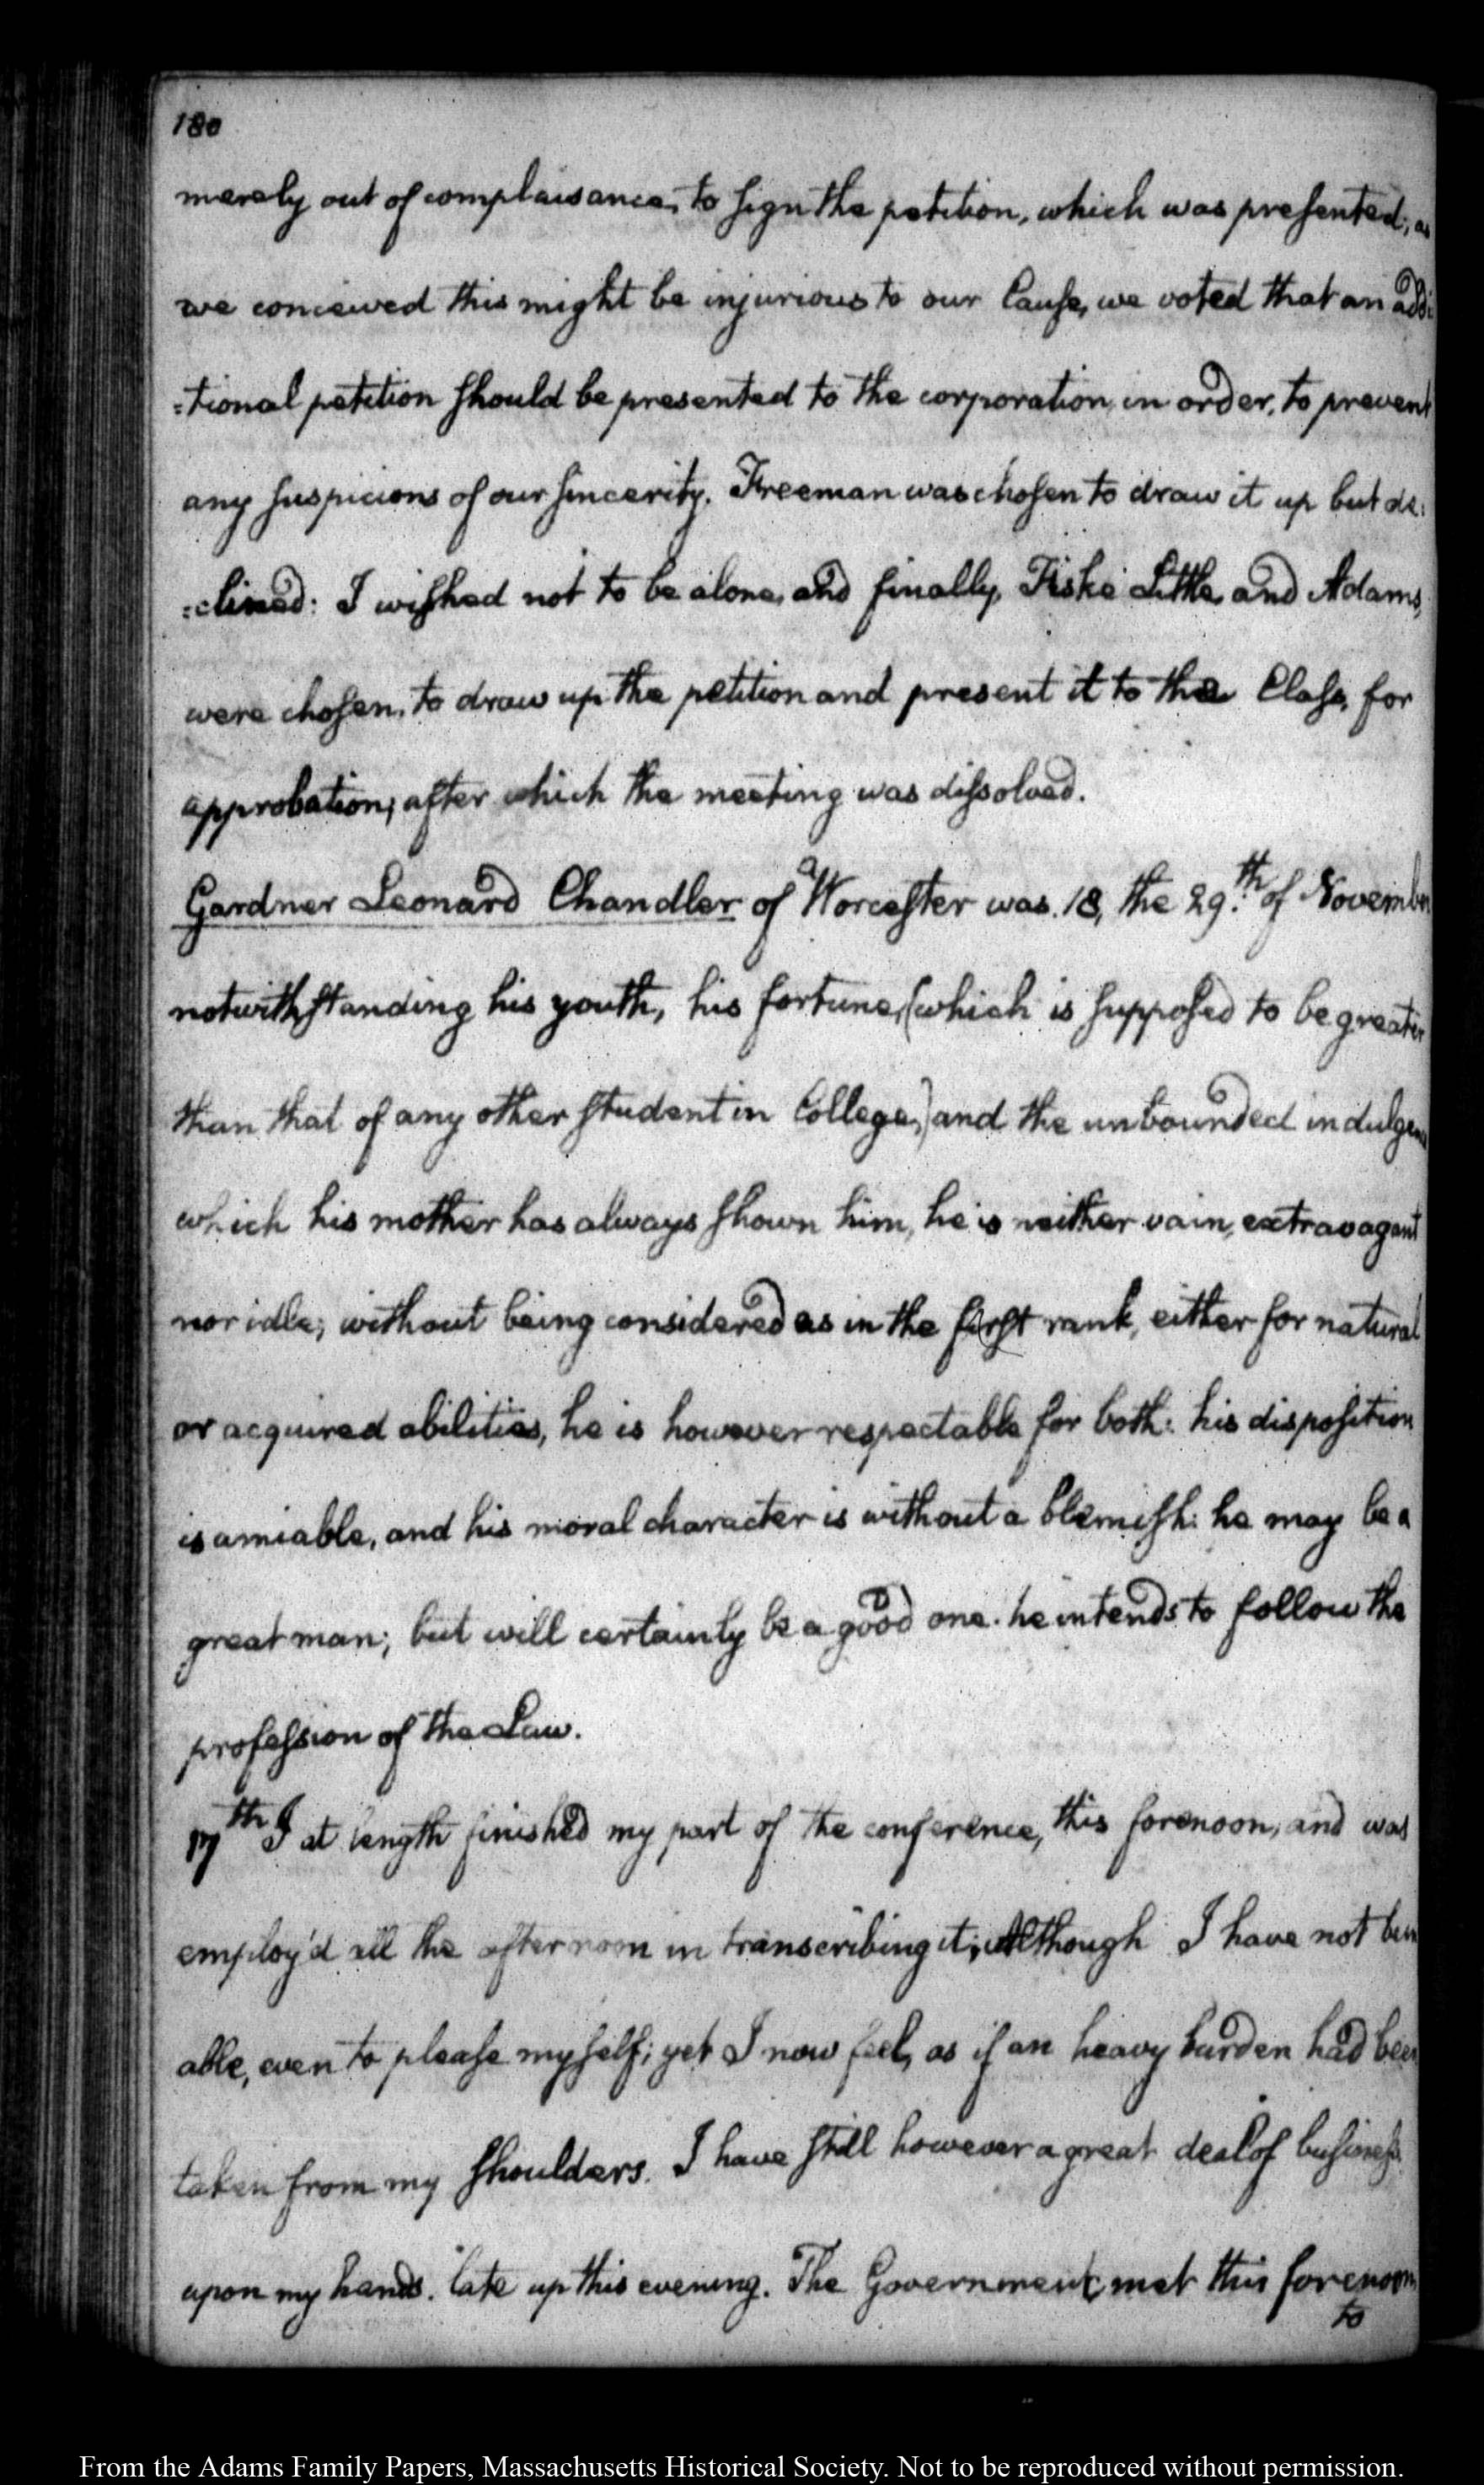 180
merely out of complaisance, to sign the petition, which was presented; as
we conceived this might be injurious to our Cause, we voted that an addi
:tional petition should be presented to the corporation, in order, to prevent
any suspicions of our sincerity. Freeman was chosen to draw it up but de:
:clined: I wished not to be alone, and finally, Fiske Little, and Adams,
were chosen, to draw up the petition and present it to the Class, for
approbation; after which the meeting was dissolved.
Gardner Leonard Chandler of a Worcester was 18, the 29.th of November
notwithstanding his youth, his fortune, (which is supposed to be greater
than that of any other student in College,) and the unbounded indulgence
which his mother has always shown him, he is neither vain, extravagant
nor idle; without being considered as in the first rank, either for natural
or acquired abilities, he is however respectable for both: his disposition
is amiable, and his moral character is without a blemish: he may be a
great man; but will certainly be a good one. he intends to follow the
profession of the Law.
17th I at length finished my part of the conference, this forenoon, and was
employ'd all the afternoon in transcribing it; Although I have not been
able, even to please myself; yet I now feel, as if an heavy burden had been
taken from my shoulders. I have still however a great deal of business
upon my hands. late up this evening. The Government met this forenoon
to
From the Adams Family Papers, Massachusetts Historical Society. Not to be reproduced without permission.